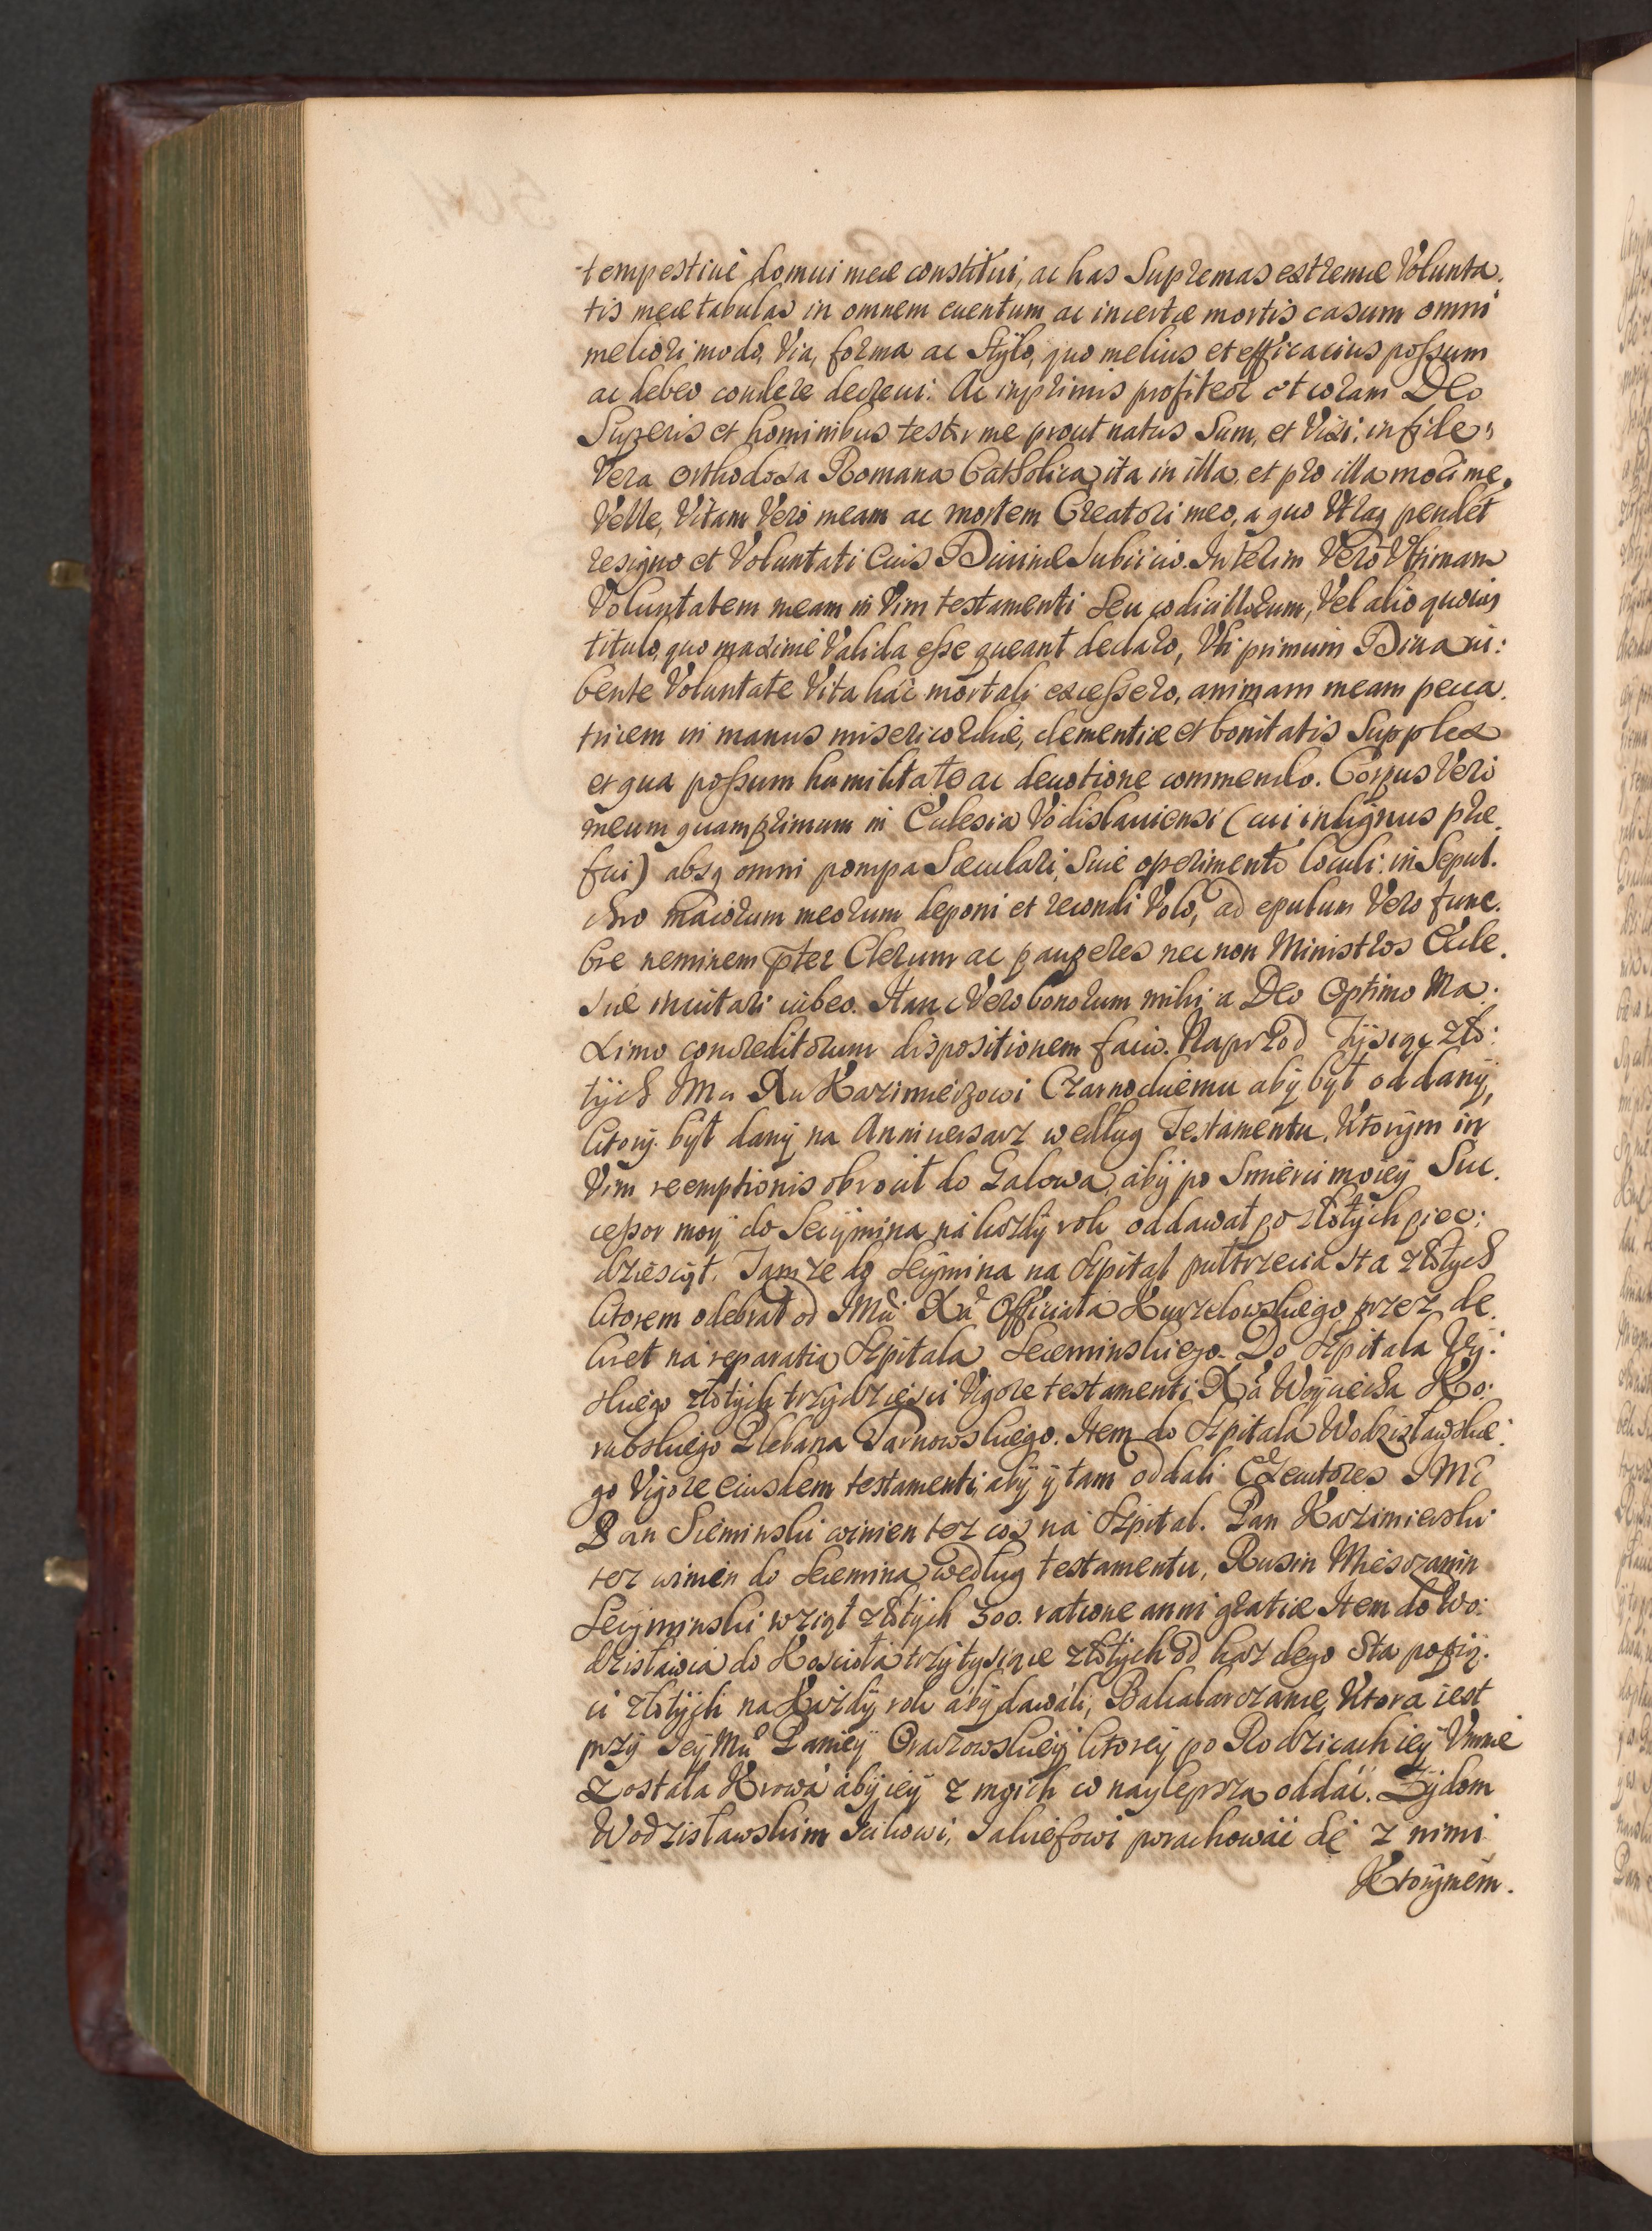 tempestive domui meæ constitui, ac has Supremas extremæ Volunta.
tis meæ tabulas in omnem euentum ac incertæ mortis casum omni
meliori modo, Via, forma ac Stylo, quo melius et efficacius possum
ac debeo condere decreui. Ac inprimis profiteor et coram Deo
Superis et hominibus testor me prout natus Sum, et Vixi in fide
Vera Orthodoxa Romana Catholica, ita in illa, et pro illa mori me
Velle, Vitam Vero meam ac mortem Creatori meo, a quo Vtraq pendet
resigno et Voluntati Eius Diuinæ Subiicio. Interim Vero Vltimam
Voluntatem meam in Vim testamenti Seu codicillorum, Vel alio quouis
titulo, quo maxime Valida esse queant declaro, Vti primum Diua iu:
bente Voluntate Vita hac mortali excessero, animam meam pecca.
tricem in manus misericordiæ, clementiæ et bonitatis Supplex
et qua possum humilitate ac deuotione commendo. Corpus Vero
meum quamprimum in Ecclesia Vodislauiensi (cui indignus præ
fui) absq omni pompa Sæculari, Siue operimento loculi in Sepul.
chro maiorum meorum deponi et recondi Volo, ad epulum Vero fune.
bre neminem pter Clerum ac pauperes nec non Ministros Eccle.
siæ inuitari iubeo. Hanc Vero bonorum mihi a Deo Optimo Ma:
ximo concreditorum dispositionem facio. Naprzod Tysiąc zło:
tych Mu Xu Kazimierzowi Czarnockiemu aby był oddany,
ktory był dany na Anniuersarz według Testamentu, Ktorym in
Vim reemptionis obrocił do Lalowa, aby po Smierci moiey Suc.
cessor moy do Secymina na kozdy rok oddawał po złotych piec:
dziesiąt. Tamze do Secymina na Szpital pułtrzecia sta złotych
ktorem odebrał od JMci Xa Officiała Kurzelowskiego przez de.
kret na reparatią Szpitala Seceminskiego. Do Szpitala
złotych trzydziesci Vigore testamenti Xa Woyciecha Ko:
rubskiego Plebana Tarnowskiego. Item do Szpitala Wodzisławskie:
go Vigore eiusdem testamenti, aby y tam oddali Exekutores JMc
Pan Sieminski winien tez cos na Szpital. Pan Kazimierski
tez winien do Secemina według testamentu, Rusin Miesczanin
Secyminski wziął złotych 300. ratione anni gratiæ Item do Wo:
dzisławia do Koscioła trzy tysiące złotych od kazdego Sta po pię.
ci złotych na Kazdy rok aby dawali, Bakalarzance, Ktora iest
przy Jey Mci Paniey ktorey po Rodzicach iey Vmnie
Zostala Krowa aby iey z moich co naylepsza oddac. Zydom
Wodzisławskim Jckowi, Jakiefowi porachowac Sę z nimi
Ktorymem.